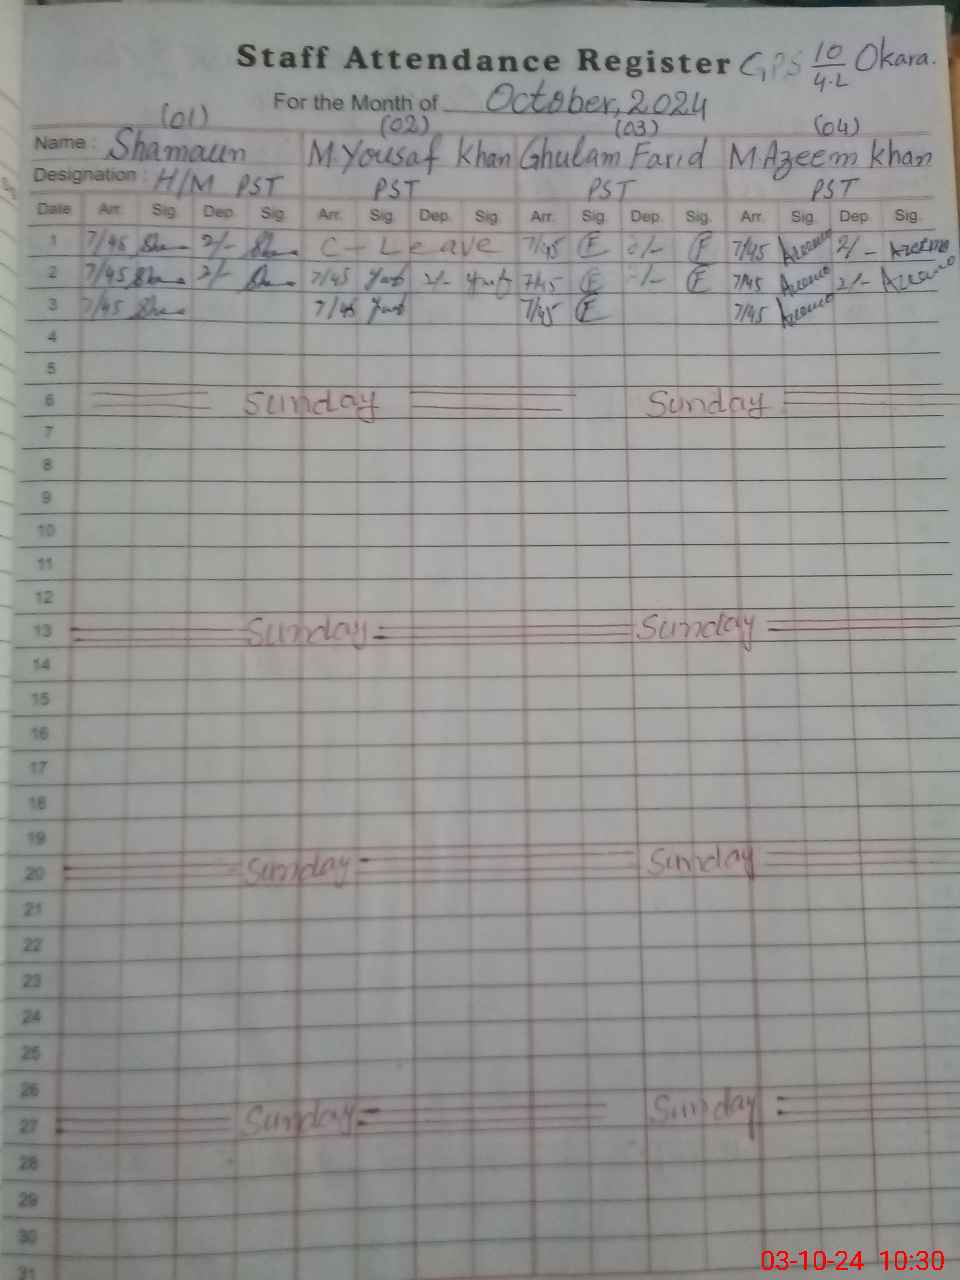 Staff Attendance Register GPS 10/4.L Okara.
For the Month of October, 2024
(01) (02) (03) (04)
Name : Shamaun M.Yousaf Khan Ghulam Farid M.Azeem khan
Designation : H/M PST PST PST PST
Date Arr. Sig. Dep. Sig. Arr. Sig. Dep. Sig. Arr. Sig. Dep. Sig. Arr. Sig. Dep. Sig.
1 7/45 2/- C-Leave 7/45 F F 7/45 2/-
2 7/45 2/- 7/45 2/- 7/45 F F 7/45 2/-
3 7/45 7/45 7/45 F 7/45
4
5
6 Sunday Sunday
7
8
9
10
11
12
13 Sunday Sunday
14
15
16
17
18
19
20 Sunday Sunday
21
22
23
24
25
26
27 Sunday Sunday
28
29
30
31
03-10-24 10:30